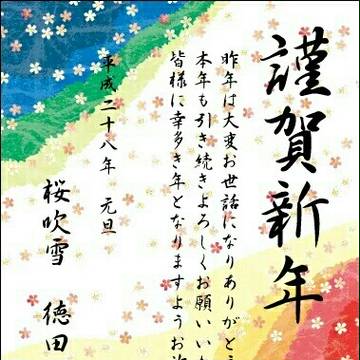 謹賀新年
昨年は大変お世話になりありがとう
本年も引き続きよろしくお願いいた
皆様に幸多き年となりますようお
平成二十八年 元旦
桜吹雪 徳田